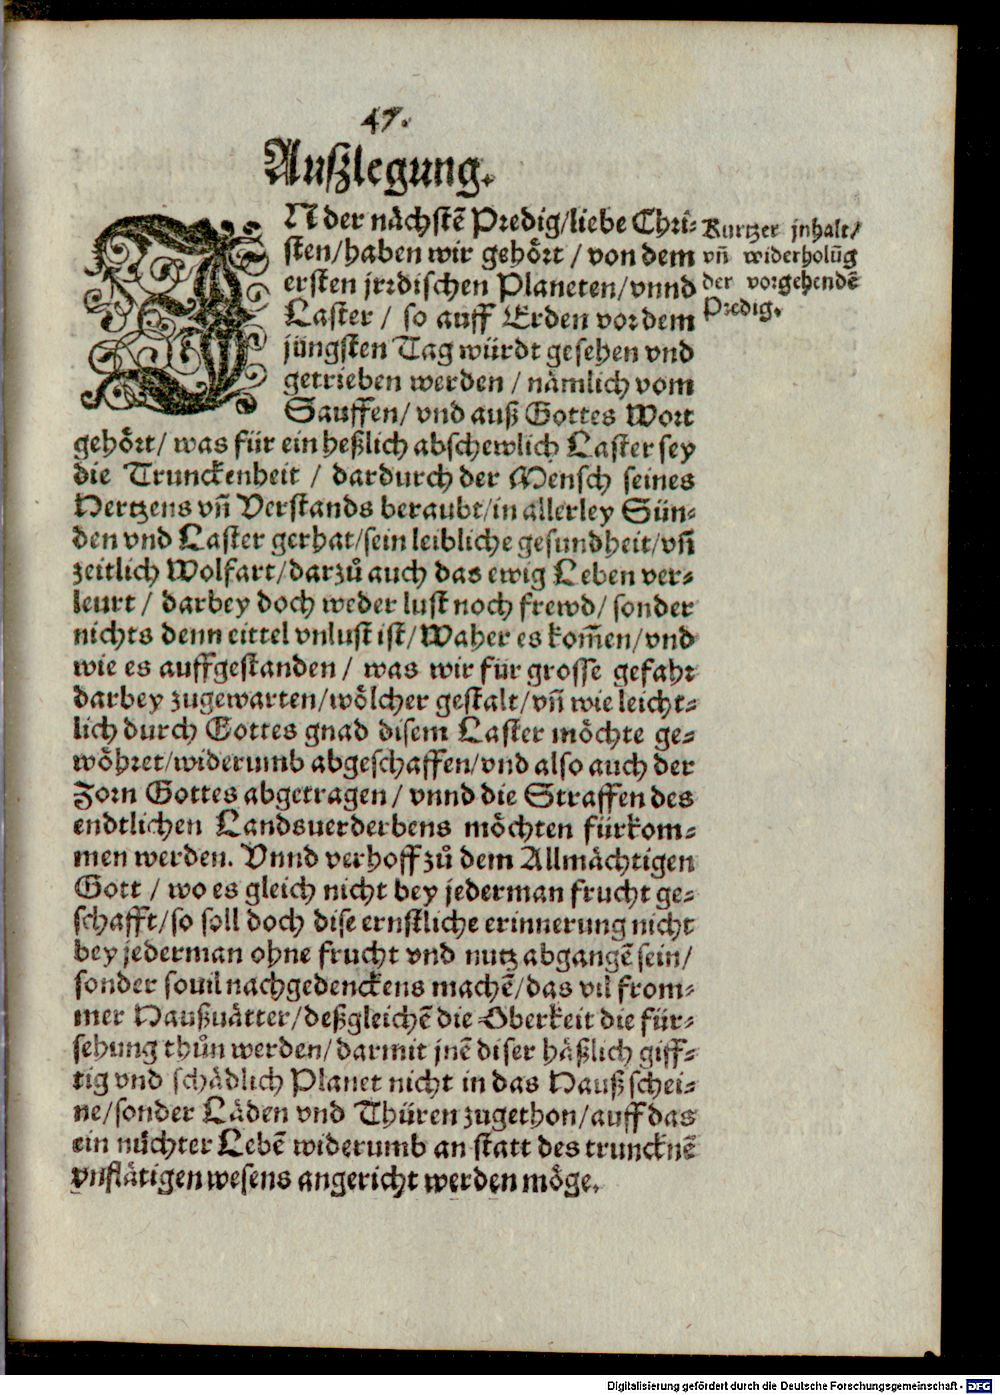 47.
Außlegung.
IN der nächstē Predig/liebe Chri-
sten/haben wir gehört / von dem
ersten jrrdischen Planeten/vnnd
Laster / so auff Erden vor dem
jüngsten Tag würdt gesehen vnd
getrieben werden / nämlich vom
Sauffen/ vnd auß Gottes Wort
Kurtzer jnhalt/
vn̄ widerholūg
der vorgehendē
Predig.
gehört/ was für ein heßlich abschewlich Laster sey
die Trunckenheit / dardurch der Mensch seines
Hertzens vn̄ Verstands beraubt/in allerley Sün-
den vnd Laster gerhat/sein leibliche gesundheit/vn̄
zeitlich Wolfart/darzů auch das ewig Leben ver-
leurt / darbey doch weder lust noch frewd/ sonder
nichts denn eittel vnlust ist/Waher es kom̄en/vnd
wie es auffgestanden / was wir für grosse gefahr
darbey zugewarten/wölcher gestalt/vn̄ wie leicht-
lich durch Gottes gnad disem Laster möchte ge-
wöhret/widerumb abgeschaffen/vnd also auch der
Zorn Gottes abgetragen / vnnd die Straffen des
endtlichen Landsuerderbens möchten fürkom-
men werden. Vnnd verhoff zů dem Allmächtigen
Gott / wo es gleich nicht bey jederman frucht ge-
schafft/so soll doch dise ernstliche erinnerung nicht
bey jederman ohne frucht vnd nutz abgangē sein/
sonder souil nachgedenckens machē/das vil from-
mer Haußuätter/deßgleichē die Oberkeit die für-
sehung thůn werden/darmit jnē diser häßlich giff-
tig vnd schädlich Planet nicht in das Hauß schei-
ne/sonder Läden vnd Thüren zugethon/auff das
ein nüchter Lebē widerumb an statt des truncknē
vnflätigen wesens angericht werden möge.
Digitalisierung gefördert durch die Deutsche Forschungsgemeinschaft - DFG